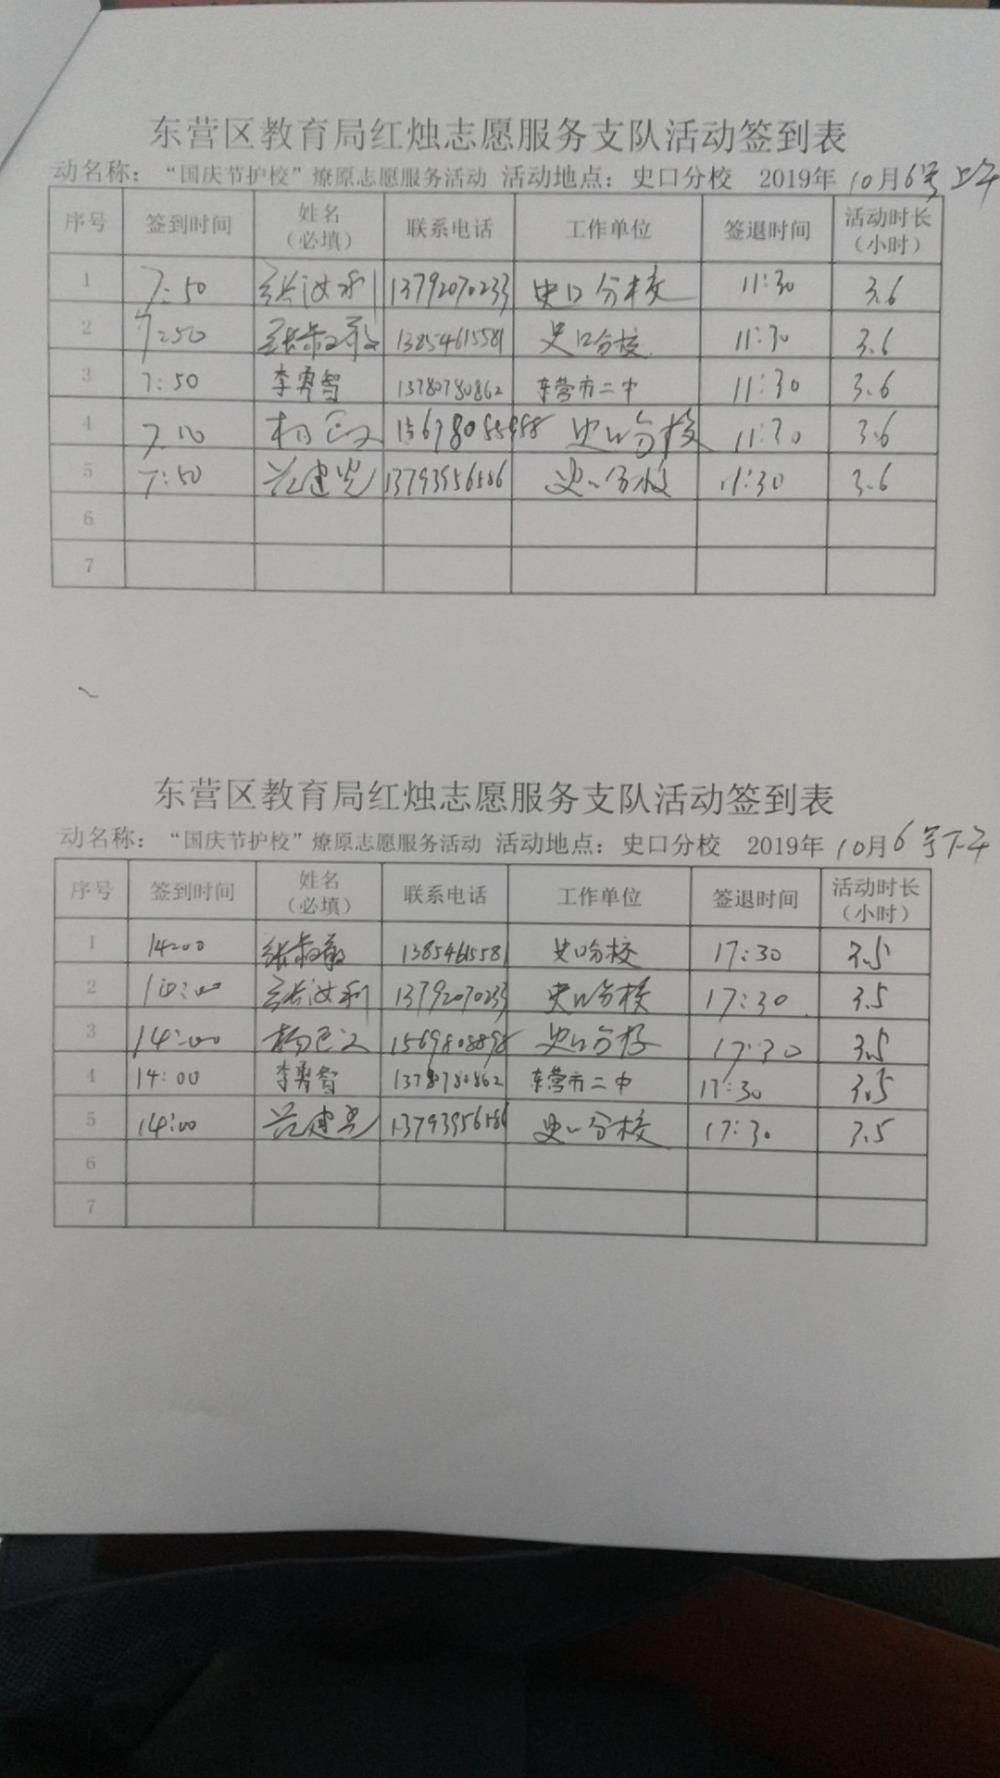 东营区教育局红烛志愿服务支队活动签到表
动名称：“国庆节护校”燎原志愿服务活动 活动地点：史口分校 2019年10月6号上午
序号 签到时间 姓名（必填） 联系电话 工作单位 签退时间 活动时长（小时）
1 7:50 张汝利 13792070233 史口分校 11:30 3.6
2 7:50 张 13854615581 史口分校 11:30 3.6
3 7:50 李勇智 13780780862 东营市二中 11:30 3.6
4 杨 史口分校 11:30 3.6
5 7:50 建光 13793956586 史口分校 11:30 3.6
6
7
东营区教育局红烛志愿服务支队活动签到表
动名称：“国庆节护校”燎原志愿服务活动 活动地点：史口分校 2019年10月6号下午
序号 签到时间 姓名（必填） 联系电话 工作单位 签退时间 活动时长（小时）
1 14:00 张 1385461558 史口分校 17:30 3.5
2 张汝利 13792070233 史口分校 17:30 3.5
3 14:00 杨 史口分校 17:30 3.5
4 14:00 李勇智 13780780862 东营市二中 17:30 3.5
5 14:00 建光 13793956586 史口分校 17:30 3.5
6
7